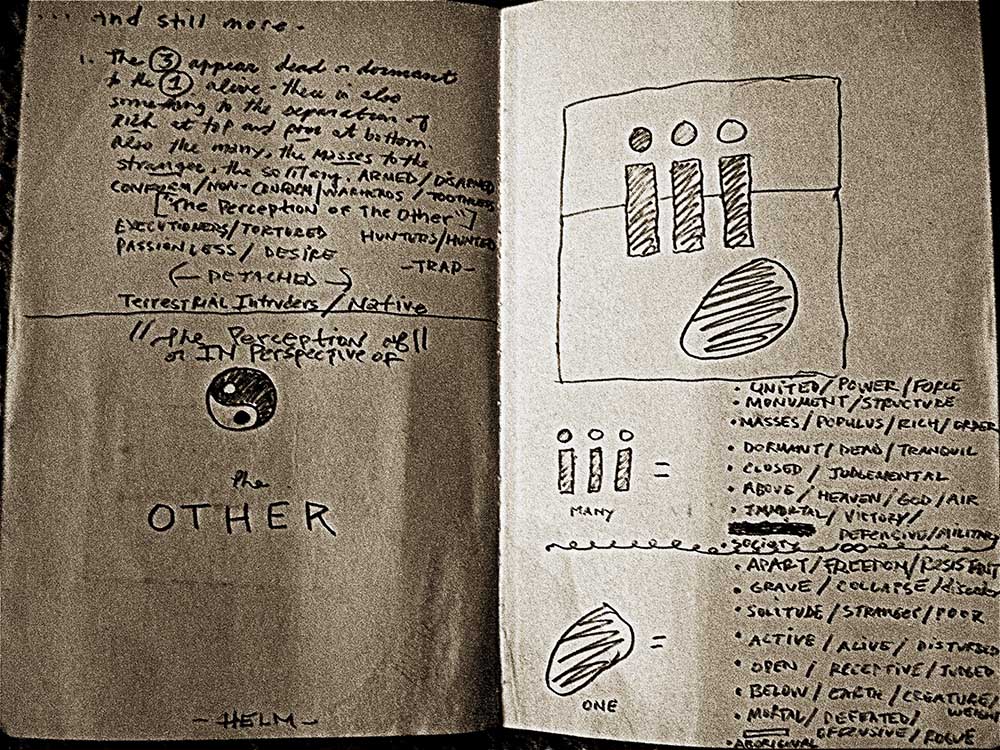 ... And still more.
1. The 3 appear dead or dormant
to the 1 alive - there is also
something to the separation of
Rich at top and poor at bottom.
Also the many, the masses to the
stranger, the solitary. ARMED/DISARMED
CONFORM/NON-CONFORM/WARHEADS/TOOTHLESS
["The Perception of The Other"]
EXECUTIONERS/TORTURED HUNTERS/HUNTED
PASSIONLESS/DESIRE -TRAP-
(-DETACHED-)
Terrestrial Intruders/Native
"The Perception of"
or IN Perspective of
the
OTHER
-HELM-
• UNITED/POWER/FORCE
• MONUMENT/STRUCTURE
• MASSES/POPULUS/RICH/ORDER
• DORMANT/DEAD/TRANQUIL
• CLOSED/JUDGEMENTAL
• ABOVE/HEAVEN/GOD/AIR
• IMMORTAL/VICTORY/
DEFENSIVE/MILITARY
• SOCIETY
=
MANY
• APART/FREEDOM/RESISTENT
• GRAVE/COLLAPSE/disorder
• SOLITUDE/STRANGER/POOR
• ACTIVE/ALIVE/DISTURBED
• OPEN/RECEPTIVE/JUDGED
• BELOW/EARTH/CREATURE/
WEIGHT
• MORTAL/DEFEATED/
OFFENSIVE/ROGUE
• ABORIGINAL
=
ONE